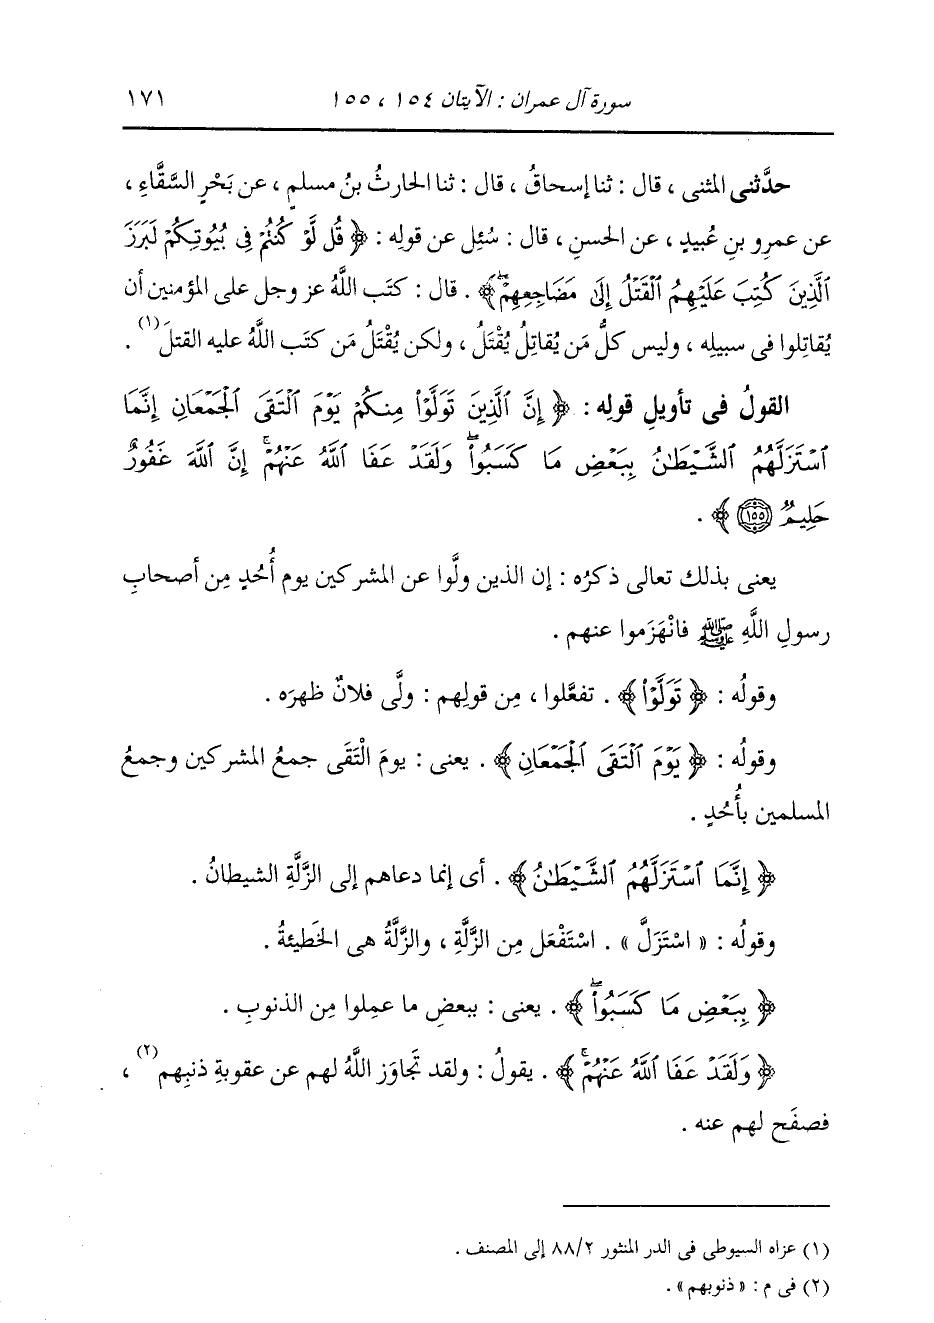 سورة آل عمران : الآيتان ١٥٤ ، ١٥٥ ١٧١
حدَّثنى المثنى ، قال : ثنا إسحاقُ ، قال : ثنا الحارثُ بنُ مسلمٍ ، عن بَحْرٍ السَّقَّاءِ ،
عن عمرِو بنِ عُبيدٍ ، عن الحسنِ ، قال : سُئِل عن قولِه : ﴿ قُل لَّوْ كُنتُمْ فِى بُيُوتِكُمْ لَبَرَزَ
ٱلَّذِينَ كُتِبَ عَلَيْهِمُ ٱلْقَتْلُ إِلَىٰ مَضَاجِعِهِمْۖ ﴾ . قال : كتَب اللَّهُ عز وجل على المؤمنين أن
يُقاتِلوا فى سبيلِه ، وليس كلُّ مَن يُقاتِلُ يُقْتَلُ ، ولكن يُقْتَلُ مَن كتَب اللَّهُ عليه القتلَ(١) .
القولُ فى تأويلِ قولِه : ﴿ إِنَّ ٱلَّذِينَ تَوَلَّوْا۟ مِنكُمْ يَوْمَ ٱلْتَقَى ٱلْجَمْعَانِ إِنَّمَا
ٱسْتَزَلَّهُمُ ٱلشَّيْطَٰنُ بِبَعْضِ مَا كَسَبُوا۟ۖ وَلَقَدْ عَفَا ٱللَّهُ عَنْهُمْۗ إِنَّ ٱللَّهَ غَفُورٌ
حَلِيمٌ ١٥٥ ﴾ .
يعنى بذلك تعالى ذكرُه : إن الذين ولَّوا عن المشركين يوم أُحُدٍ مِن أصحابِ
رسولِ اللَّهِ ﷺ فانْهَزَموا عنهم .
وقولُه : ﴿ تَوَلَّوْا۟ ﴾ . تفعَّلوا ، مِن قولِهم : ولَّى فلانٌ ظهرَه .
وقولُه : ﴿ يَوْمَ ٱلْتَقَى ٱلْجَمْعَانِ ﴾ . يعنى : يومَ الْتَقَى جمعُ المشركين وجمعُ
المسلمين بأُحُدٍ .
﴿ إِنَّمَا ٱسْتَزَلَّهُمُ ٱلشَّيْطَٰنُ ﴾ . أى إنما دعاهم إلى الزَّلَّةِ الشيطانُ .
وقولُه : « اسْتَزَلَّ » . اسْتَفْعَل مِن الزَّلَّةِ ، والزَّلَّةُ هى الخَطيئةُ .
﴿ بِبَعْضِ مَا كَسَبُوا۟ۖ ﴾ . يعنى : ببعضِ ما عمِلوا مِن الذنوبِ .
﴿ وَلَقَدْ عَفَا ٱللَّهُ عَنْهُمْۗ ﴾ . يقولُ : ولقد تَجاوَز اللَّهُ لهم عن عقوبةِ ذنبِهم(٢) ،
فصفَح لهم عنه .
(١) عزاه السيوطى فى الدر المنثور ٨٨/٢ إلى المصنف .
(٢) فى م : « ذنوبهم » .